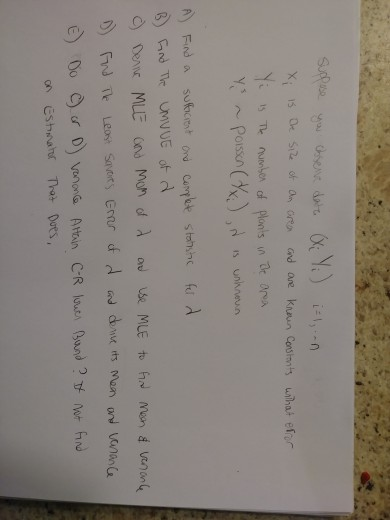 Suppose you observe data (Xi Yi) i=1,...n
Xi is the size of an area and are known constants without error
Yi is the number of plants in the area
Yi's ~ Poisson(λXi), λ is unknown
A) Find a sufficient and complete statistic for λ
B) Find The UMVUE of λ
C) Derive MLE and MOM of λ and use MLE to find mean & variance
D) Find The Least Squares Error of λ and derive its mean and variance
E) Do C) or D) variance Attain C-R lower Bound? If not find
an estimator That Does.